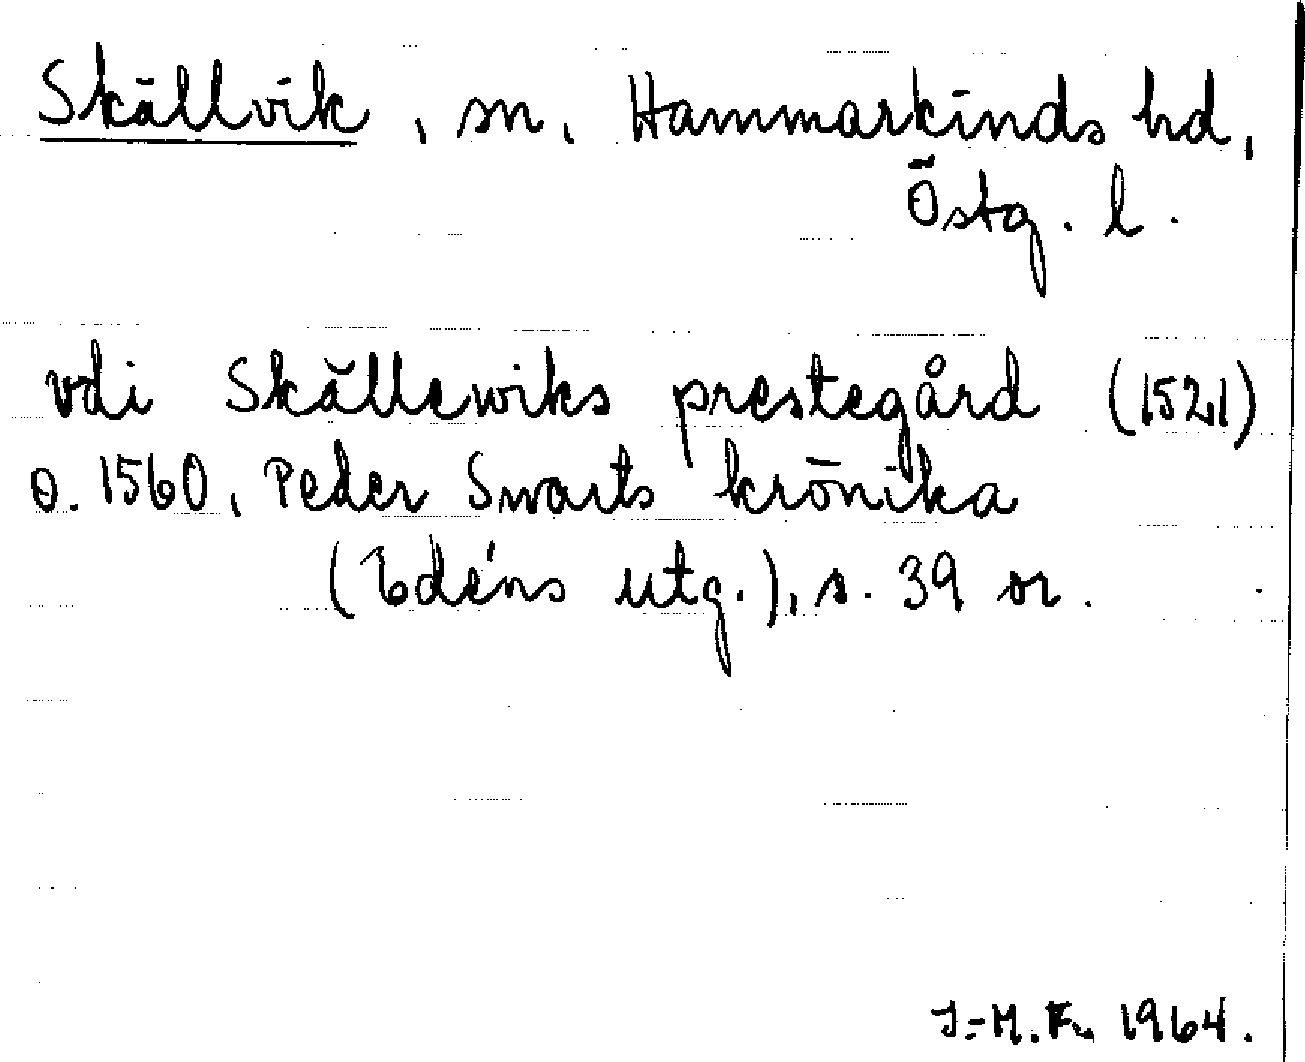 Skällvik, sn, Hammarkinds hd,
Östg. l.
vdi Skällewiks prestegård (1521)
o. 1560, Peder Swarts krönika
(Edéns utg.), s. 39 or.
J-M. F. 1964.